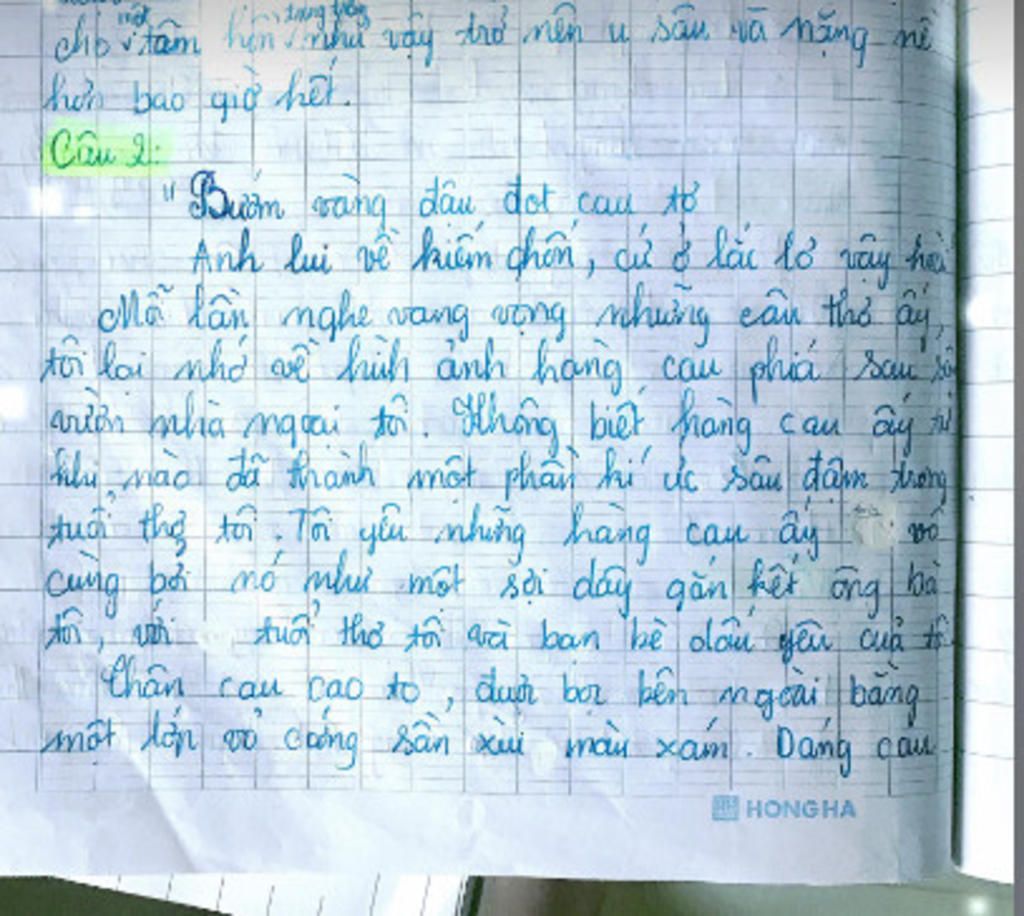 một trong trắng
cho v tâm hồn như vậy trở nên u sầu và nặng nề
hơn bao giờ hết.
Câu 2:
"Bướm vàng đậu đọt cau tơ
Anh lui về kiếm chốn, cứ ở lắc lơ vậy hoài
Mỗ lần nghe vang vọng những câu thơ ấy,
tôi lại nhớ về hình ảnh hàng cau phía sau
vườn nhà ngoại tôi. Không biết hàng cau ấy từ
khi nào đã thành một phần kí ức sâu đậm trong
tuổi thơ tôi. Tôi yêu những hàng cau ấy vô
cùng bởi nó như một sợi dây gắn kết ông bà
tôi, với tuổi thơ tôi và bạn bè dấu yêu của tô
Thân cau cao to, được bọc bên ngoài bằng
một lớp vỏ cứng sần xùi màu xám. Dáng cau
HONG HA